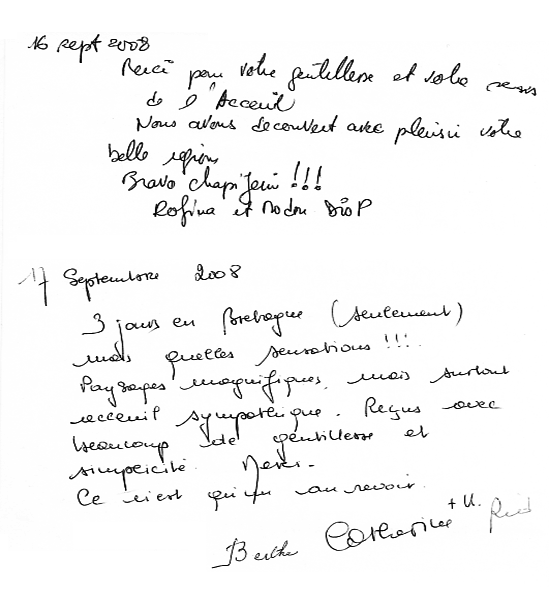 16 sept 2008
Merci pour votre gentillesse et votre sens
de l'Acceuil
Nous avons decouvert avec plaisir votre
belle region
Bravo chapi
Rofina et Modou DioP
17 Septembre 2008
3 jours en Bretagne (seulement)
mais quelles sensations !!!
Paysages magnifiques, mais surtout
acceuil sympathique. Reçus avec
beaucoup de gentillesse et
simplicité. Merci.
Ce n'est qu'un au revoir.
Berthe Catherine +